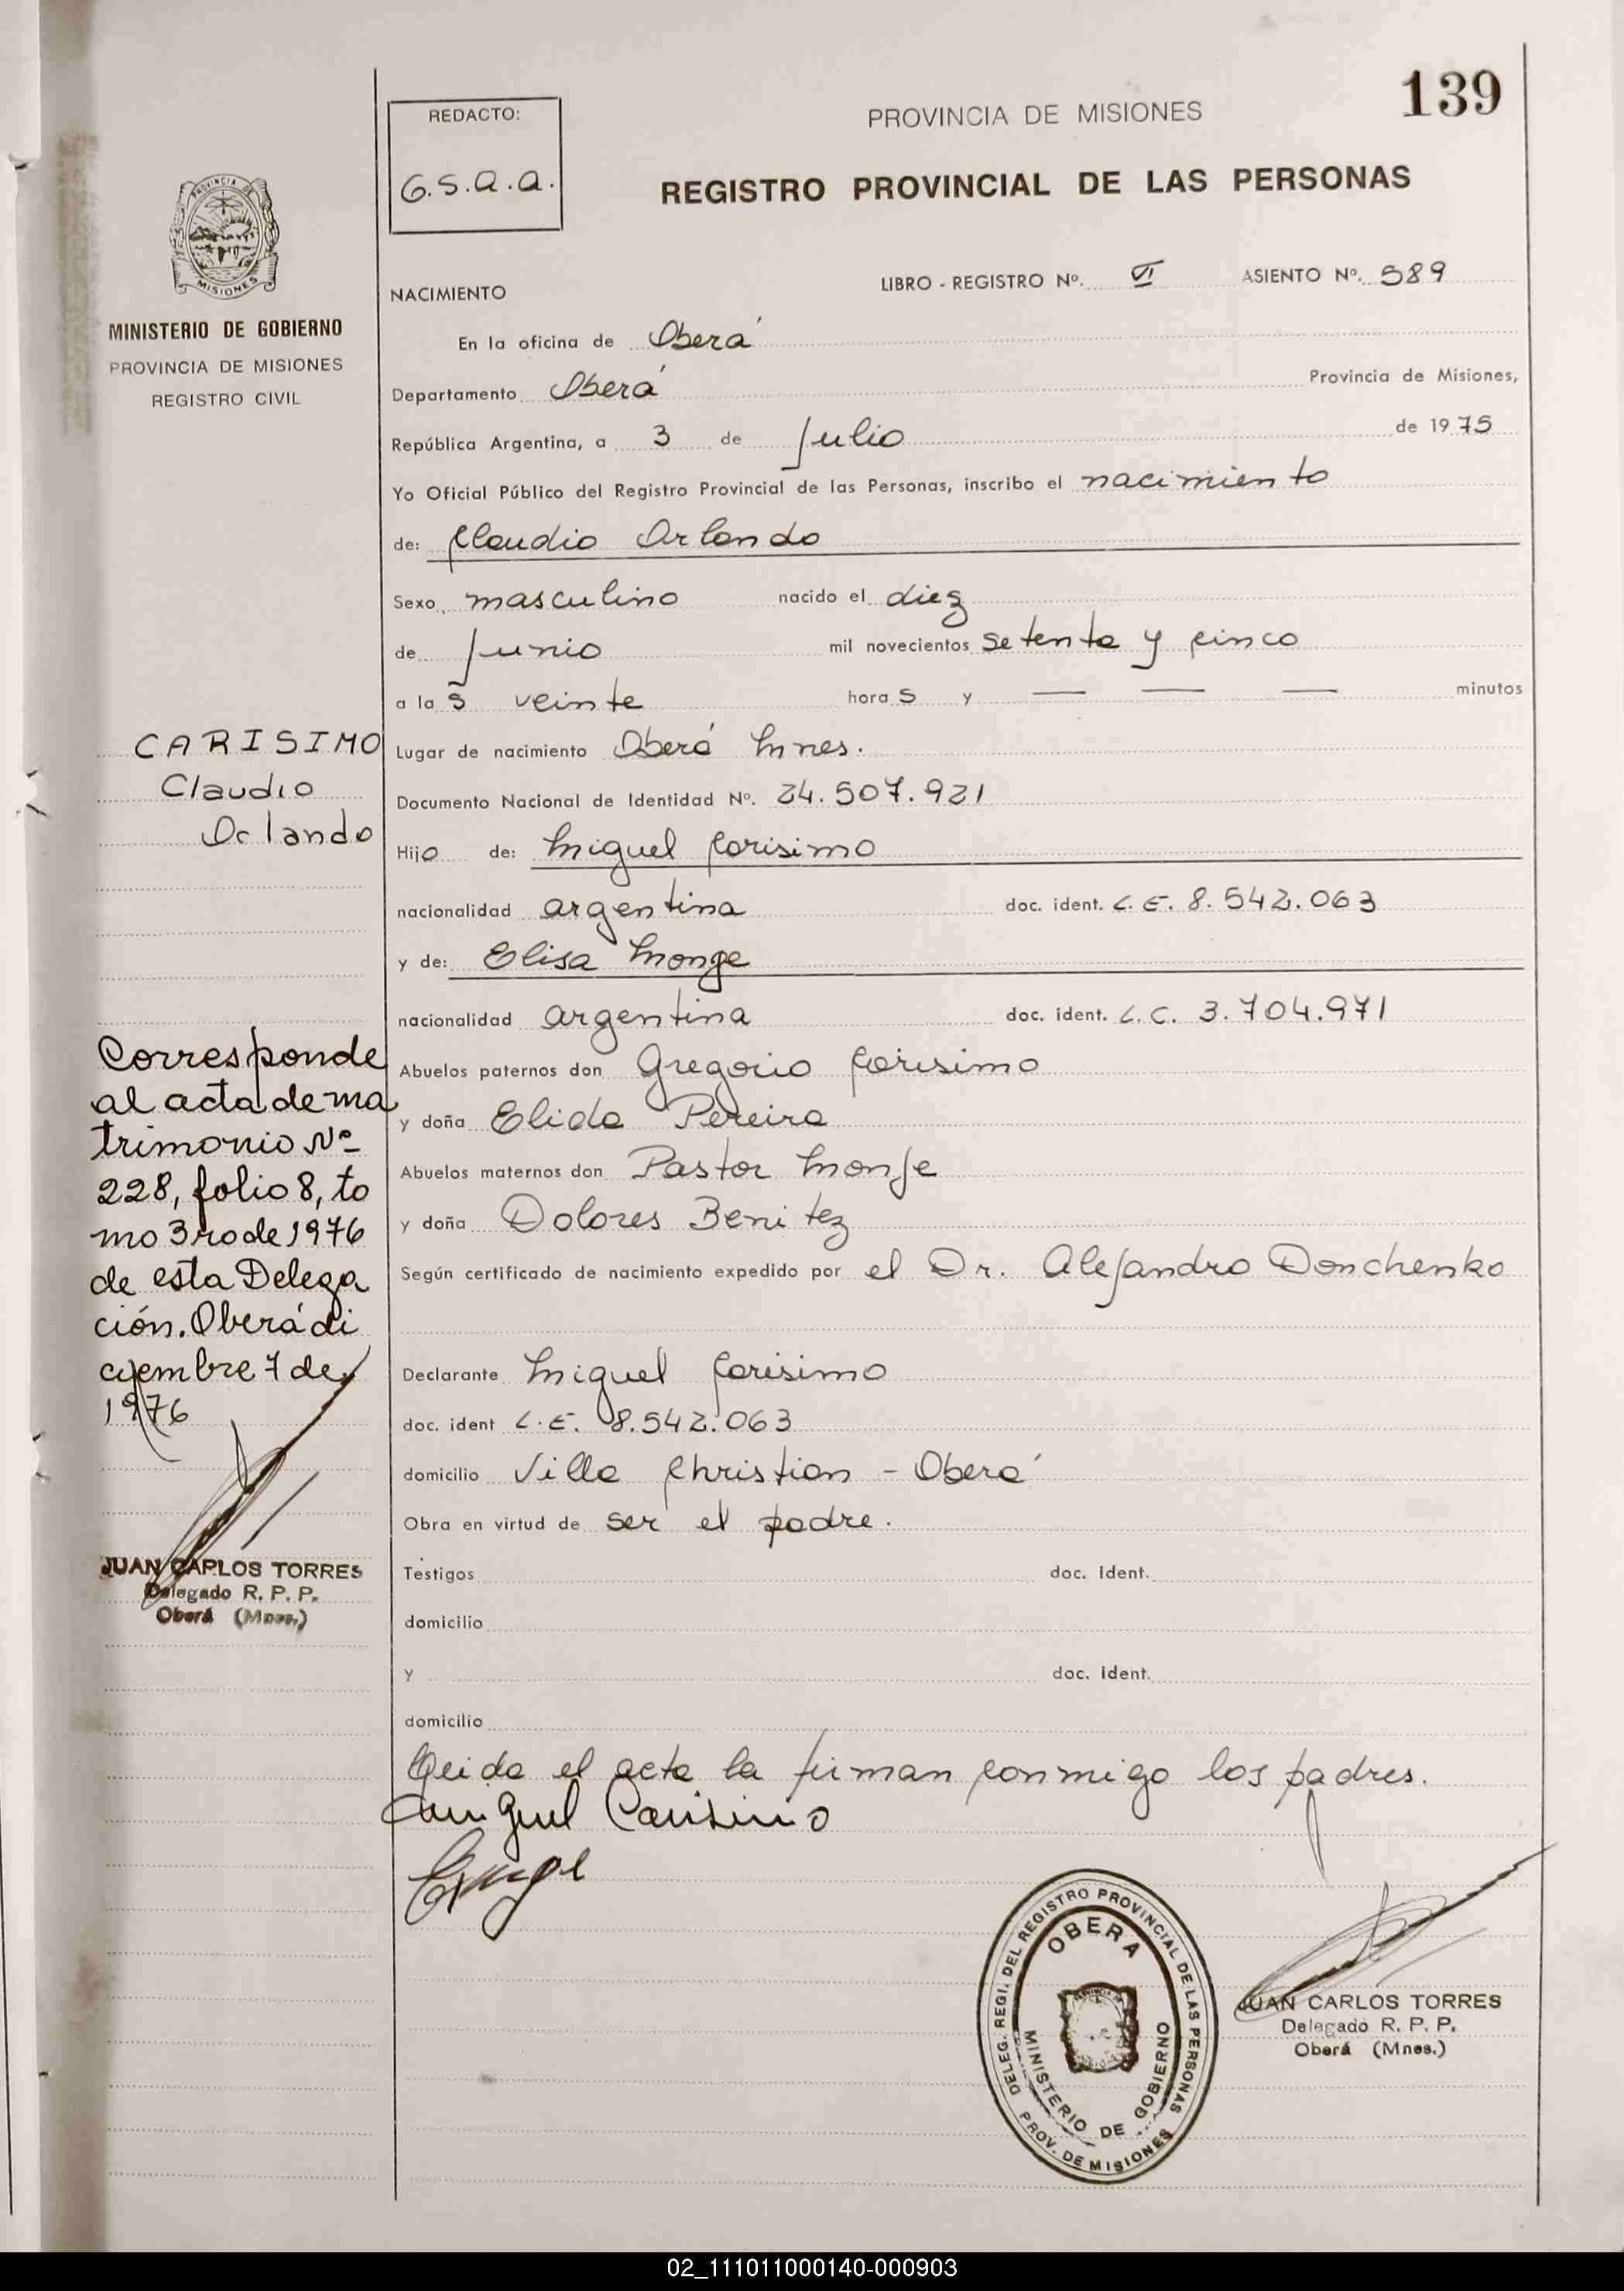 139
REDACTO:
G.S.a.a.
PROVINCIA DE MISIONES
REGISTRO PROVINCIAL DE LAS PERSONAS
PROVINCIA DE
MISIONES
MINISTERIO DE GOBIERNO
PROVINCIA DE MISIONES
REGISTRO CIVIL
NACIMIENTO
LIBRO - REGISTRO Nº. VI ASIENTO Nº. 589
En la oficina de Oberá
Departamento Oberá Provincia de Misiones,
República Argentina, a 3 de Julio de 1975
Yo Oficial Público del Registro Provincial de las Personas, inscribo el nacimiento
de: Claudio Orlando
Sexo masculino nacido el diez
de Junio mil novecientos setenta y cinco
a las veinte horas y — — — minutos
Lugar de nacimiento Oberá Mnes.
Documento Nacional de Identidad Nº. 24.507.921
Hijo de: Miguel Carisimo
nacionalidad argentina doc. ident. L.E. 8.542.063
y de: Elisa Monge
nacionalidad argentina doc. ident. L.C. 3.704.971
Abuelos paternos don Gregorio Carisimo
y doña Elida Pereira
Abuelos maternos don Pastor Monje
y doña Dolores Benitez
Según certificado de nacimiento expedido por el Dr. Alejandro Donchenko
Declarante Miguel Carisimo
doc. ident L.E. 8.542.063
domicilio Villa Christian - Oberá
Obra en virtud de ser el padre.
Testigos doc. Ident.
domicilio
y doc. Ident.
domicilio
Leida el acta la firman conmigo los padres.
Miguel Carisimo
CARISIMO
Claudio
Orlando
Corresponde
al acta de ma
trimonio Nº
228, folio 8, to
mo 3ro de 1976
de esta Delega
ción. Oberá di
ciembre 7 de
1976
JUAN CARLOS TORRES
Delegado R. P. P.
Oberá (Mnes.)
DELEG. REGI. DEL REGISTRO PROVINCIAL DE LAS PERSONAS
PROV. DE MISIONES
OBERA
MINISTERIO DE GOBIERNO
JUAN CARLOS TORRES
Delegado R. P. P.
Oberá (Mnes.)
02_111011000140-000903